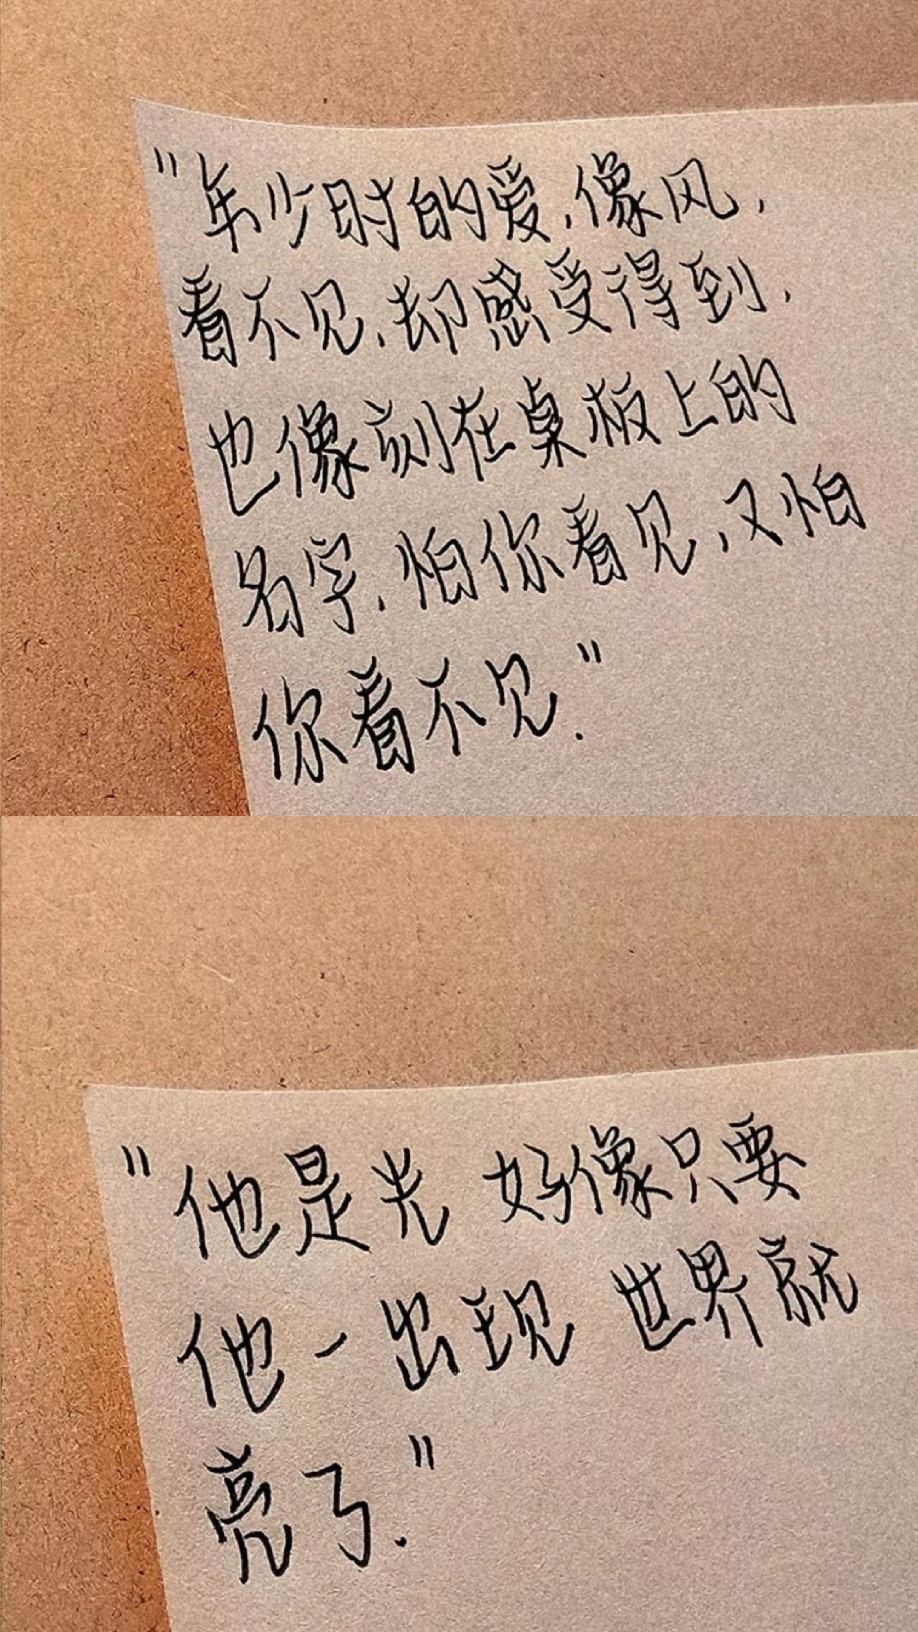 "年少时的爱,像风,
看不见,却感受得到,
也像刻在桌板上的
名字,怕你看见,又怕
你看不见."
"他是光 好像只要
他一出现 世界就
亮了."